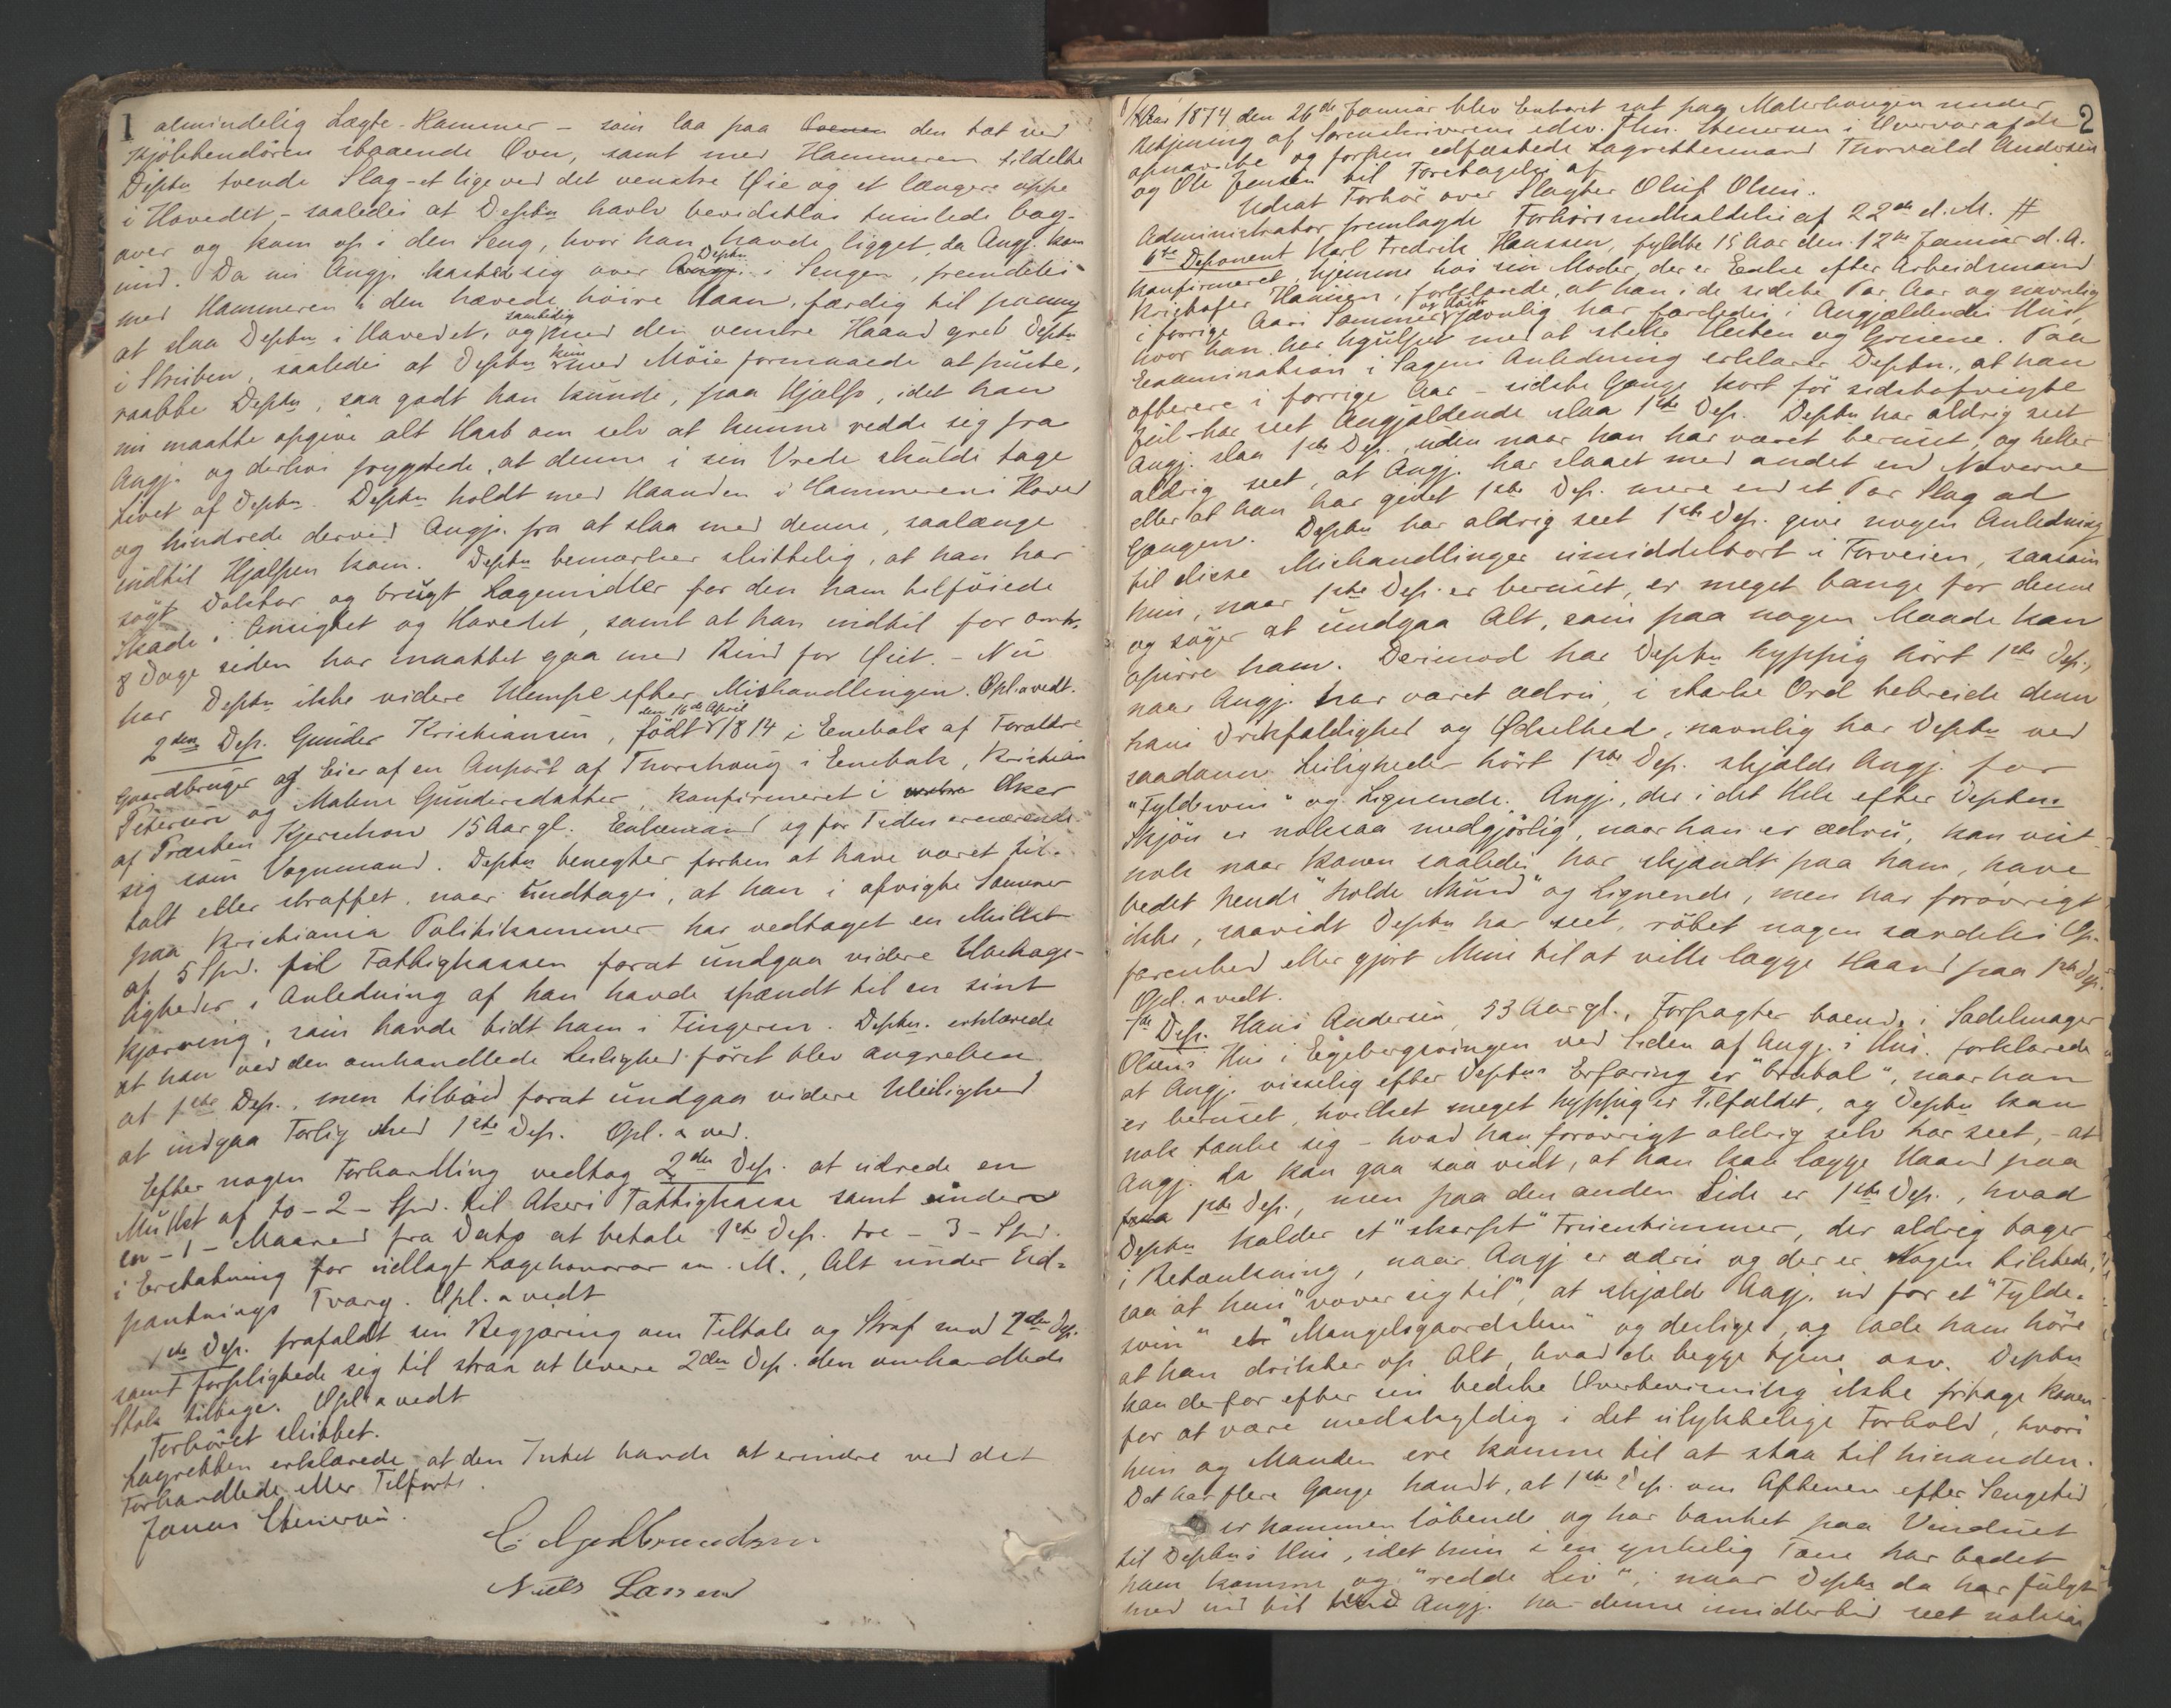 1
almindelig Lægte-Hammer – som laa paa Ovenen den tæt ved
Kjøkkendøren staaende Ovn, samt med Hammeren tildelte
Deptn tvende Slag – et lige ved det venstre Øie og et længere oppe
i Hovedet, – saaledes at Deptn halv bevidstløs tumlede bag-
over og kom op i den Seng, hvor han havde ligget, da Angj. kom
ind. Da nu Angj. kastede sig over Angj. Deptn i Sengen, fremdeles
med Hammeren i den hævede høire Haan, færdig til paany
at slaa Deptn i Hovedet, og samtidig med den venstre Haand greb Deptn
i Struben, saaledes at Deptn kun med Møie formaaede at puste,
raabte Deptn, saa godt han kunde, paa Hjælp, idet han
nu maatte opgive alt Haab om selv at kunne redde sig fra
Angj. og derhos frygtede, at denne i sin Vrede skulde tage
Livet af Deptn. Deptn holdt med Haanden i Hammerens Hoved
og hindrede derved Angj. fra at slaa med denne, saalænge
indtil Hjælpen kom. Deptn bemærker sluttelig, at han har
søgt Doktor og brugt Lægemidler for den ham tilføiede
Skade i Ansigtet og Hovedet, samt at han indtil for omtr.
8 Dage siden har maattet gaa med Bind for Øiet. – Nu
har Deptn ikke videre Ulempe efter Mishandlingen. Opl. & vedt.
2den Dep. Gunder Kristiansen, født den 16de April 1814 i Enebak af Forældre
Gaardbruger og Eier af en Anpart af Thorshaug i Enebak, Kristian
Petersen og Malene Gundersdatter, konfirmeret i vestre Aker
af Præsten Kjerschow 15 Aar gl. Enkemand og for Tiden ernærende
sig som Vognmand. Deptn benegter forhen at have været til-
talt eller straffet, naar undtages, at han i afvigte Sommer
paa Kristiania Politikammer har vedtaget en Mulkt
af 5 Spd. til Fattigkassen forat undgaa videre Ubehage-
ligheder i Anledning af han havde spændt til en sint
kjærring, som havde bidt ham i Fingeren. Deptn. erklærede
at han ved den omhandlede Leilighed først blev angreben
af 1ste Dep., men tilbød forat undgaa videre Uleilighed
at indgaa Forlig med 1ste Dep. Opl. & ved.
Efter nogen Forhandling vedtog 2den Dep. at udrede en
Mulkt af to – 2 – Spd. til Akers Fattigkasse samt inden
en – 1 – Maaned fra Dato at betale 1ste Dep. tre – 3 – Spd.
i Erstatning for udlagt Lægehonorar m. M., Alt under Ud-
pantnings Tvang. Opl. & vedt
1ste Dep. frafaldt sin Begjæring om Tiltale og Straf mod 2den Dep.
samt forpligtede sig til strax at levere 2den Dep. den omhandlede
Stok tilbage. Opl. & vedt
Forhøret sluttet.
Lagretten erklærede, at den Intet havde at erindre ved det
Forhandlede eller Tilførte.
Jonas Stenersen.
Niels Larsen
2
Aar 1874 den 26de Januar blev Extraret sat paa Malerhaugen under
Betjening af Sorenskriverens edsv. Fhm. Stenersen i Overvær af de
opnævnte og forhen edfæstede Lagrettesmænd Thorvald Andersen
og Ole Jensen til Foretagelse af
Udsat Forhør over Slagter Oluf Olsen.
Administrator fremlagde Forhørsudholdelse af 22de d. M. #
6te Deponent Karl Fredrik Hanssen, fyldte 15 Aar den 12te Januar d. A.
konfirmeret, hjemme hos sin Moder, der er Enke efter Arbeidsmand
Kristofer Hansen, forklarede, at han i de sidste Par Aar og navnlig
i forrige Aars Sommer og Høst jævnlig har færdedes i Angjældendes Hus,
hvor han har hjulpet med at stelle Hesten og Grisene. Paa
Examination i Sagens Anledning erklærer Deptn., at han
oftere i forrige Aar – sidste Gang kort før sidstafvigte
Jul – har seet Angjældende slaa 1ste Dep. Deptn har aldrig seet
Angj. slaa 1ste Dep., uden naar han har været beruset, og heller
aldrig seet, at Angj. har slaaet med andet end Næverne
eller at han har givet 1ste Dep. mere end et Par Slag ad
Gangen. Deptn har aldrig seet 1ste Dep. give nogen Anledning
til disse Mishandlinger umiddelbart i Forveien, saasom
hun, naar 1ste Dep. er beruset, er meget bange for denne
og søger at undgaa Alt, som paa nogen Maade kan
opirre ham. Derimod har Deptn hyppig hørt 1ste Dep.,
naar Angj. har været ædru, i stærke Ord bebreide denne
hans Drikfældighed og Ødselhed, navnlig har Deptn ved
saadanne Leiligheder hørt 1ste Dep. skjælde Angj. for
"Fyldesvin" og Lignende. Angj., der i det Hele efter Deptns
Skjøn er noksaa medgjørlig, naar han er ædru, kan vist-
nok naar Konen saaledes har skjændt paa ham, have
bedet hende "holde Mund" og Lignende, men har forøvrigt
ikke, saavidt Deptn har seet, røbet nogen særdeles Op-
farenhed eller gjort Mine til at ville lægge Haand paa 1ste Dep.
Opl. & vedt.
7de Dep. Hans Andersen, 53 Aar gl., Forpagter boende i Sadelmager
Olsens Hus i Egebergsvingen ved Siden af Angj.s Hus. forklarede
at Angj. visselig efter Deptns Erfaring er "brutal", naar han
er beruset, hvilket meget hyppig er Tilfældet, og Deptn kan
nok tænke sig – hvad han forøvrigt aldrig selv har seet, – at
Angj. da kan gaa saa vidt, at han kan lægge Haand paa
1ste Dep., men paa den anden Side er 1ste Dep., hvad
Deptn kalder et "skarpt" Fruentimmer, der aldrig tager
i Betænkning, naar Angj er ædru og der er Nogen tilstede,
saa at hun "vover sig til", at skjælde Angj. ud for et "Fylde-
svin" et "Mangelsgaardslem" og deslige, og lade ham høre
at han drikker op Alt, hvad de begge tjene osv. Deptn
kan derfor efter sin bedste Overbevisning ikke fritage Konen
for at være medskyldig i det ulykkelige Forhold, hvori
hun og Manden ere komne til at staa til hinanden.
Det har flere Gange hændt, at 1ste Dep. om Aftenen efter Sengetid
er kommen løbende og har banket paa Vinduet
til Deptns Hus, idet hun i en ynkelig Tone har bedet
ham komme og "redde Liv"; naar Deptn da har fulgt
med ind til Angj. har denne imidlertid seet noksaa